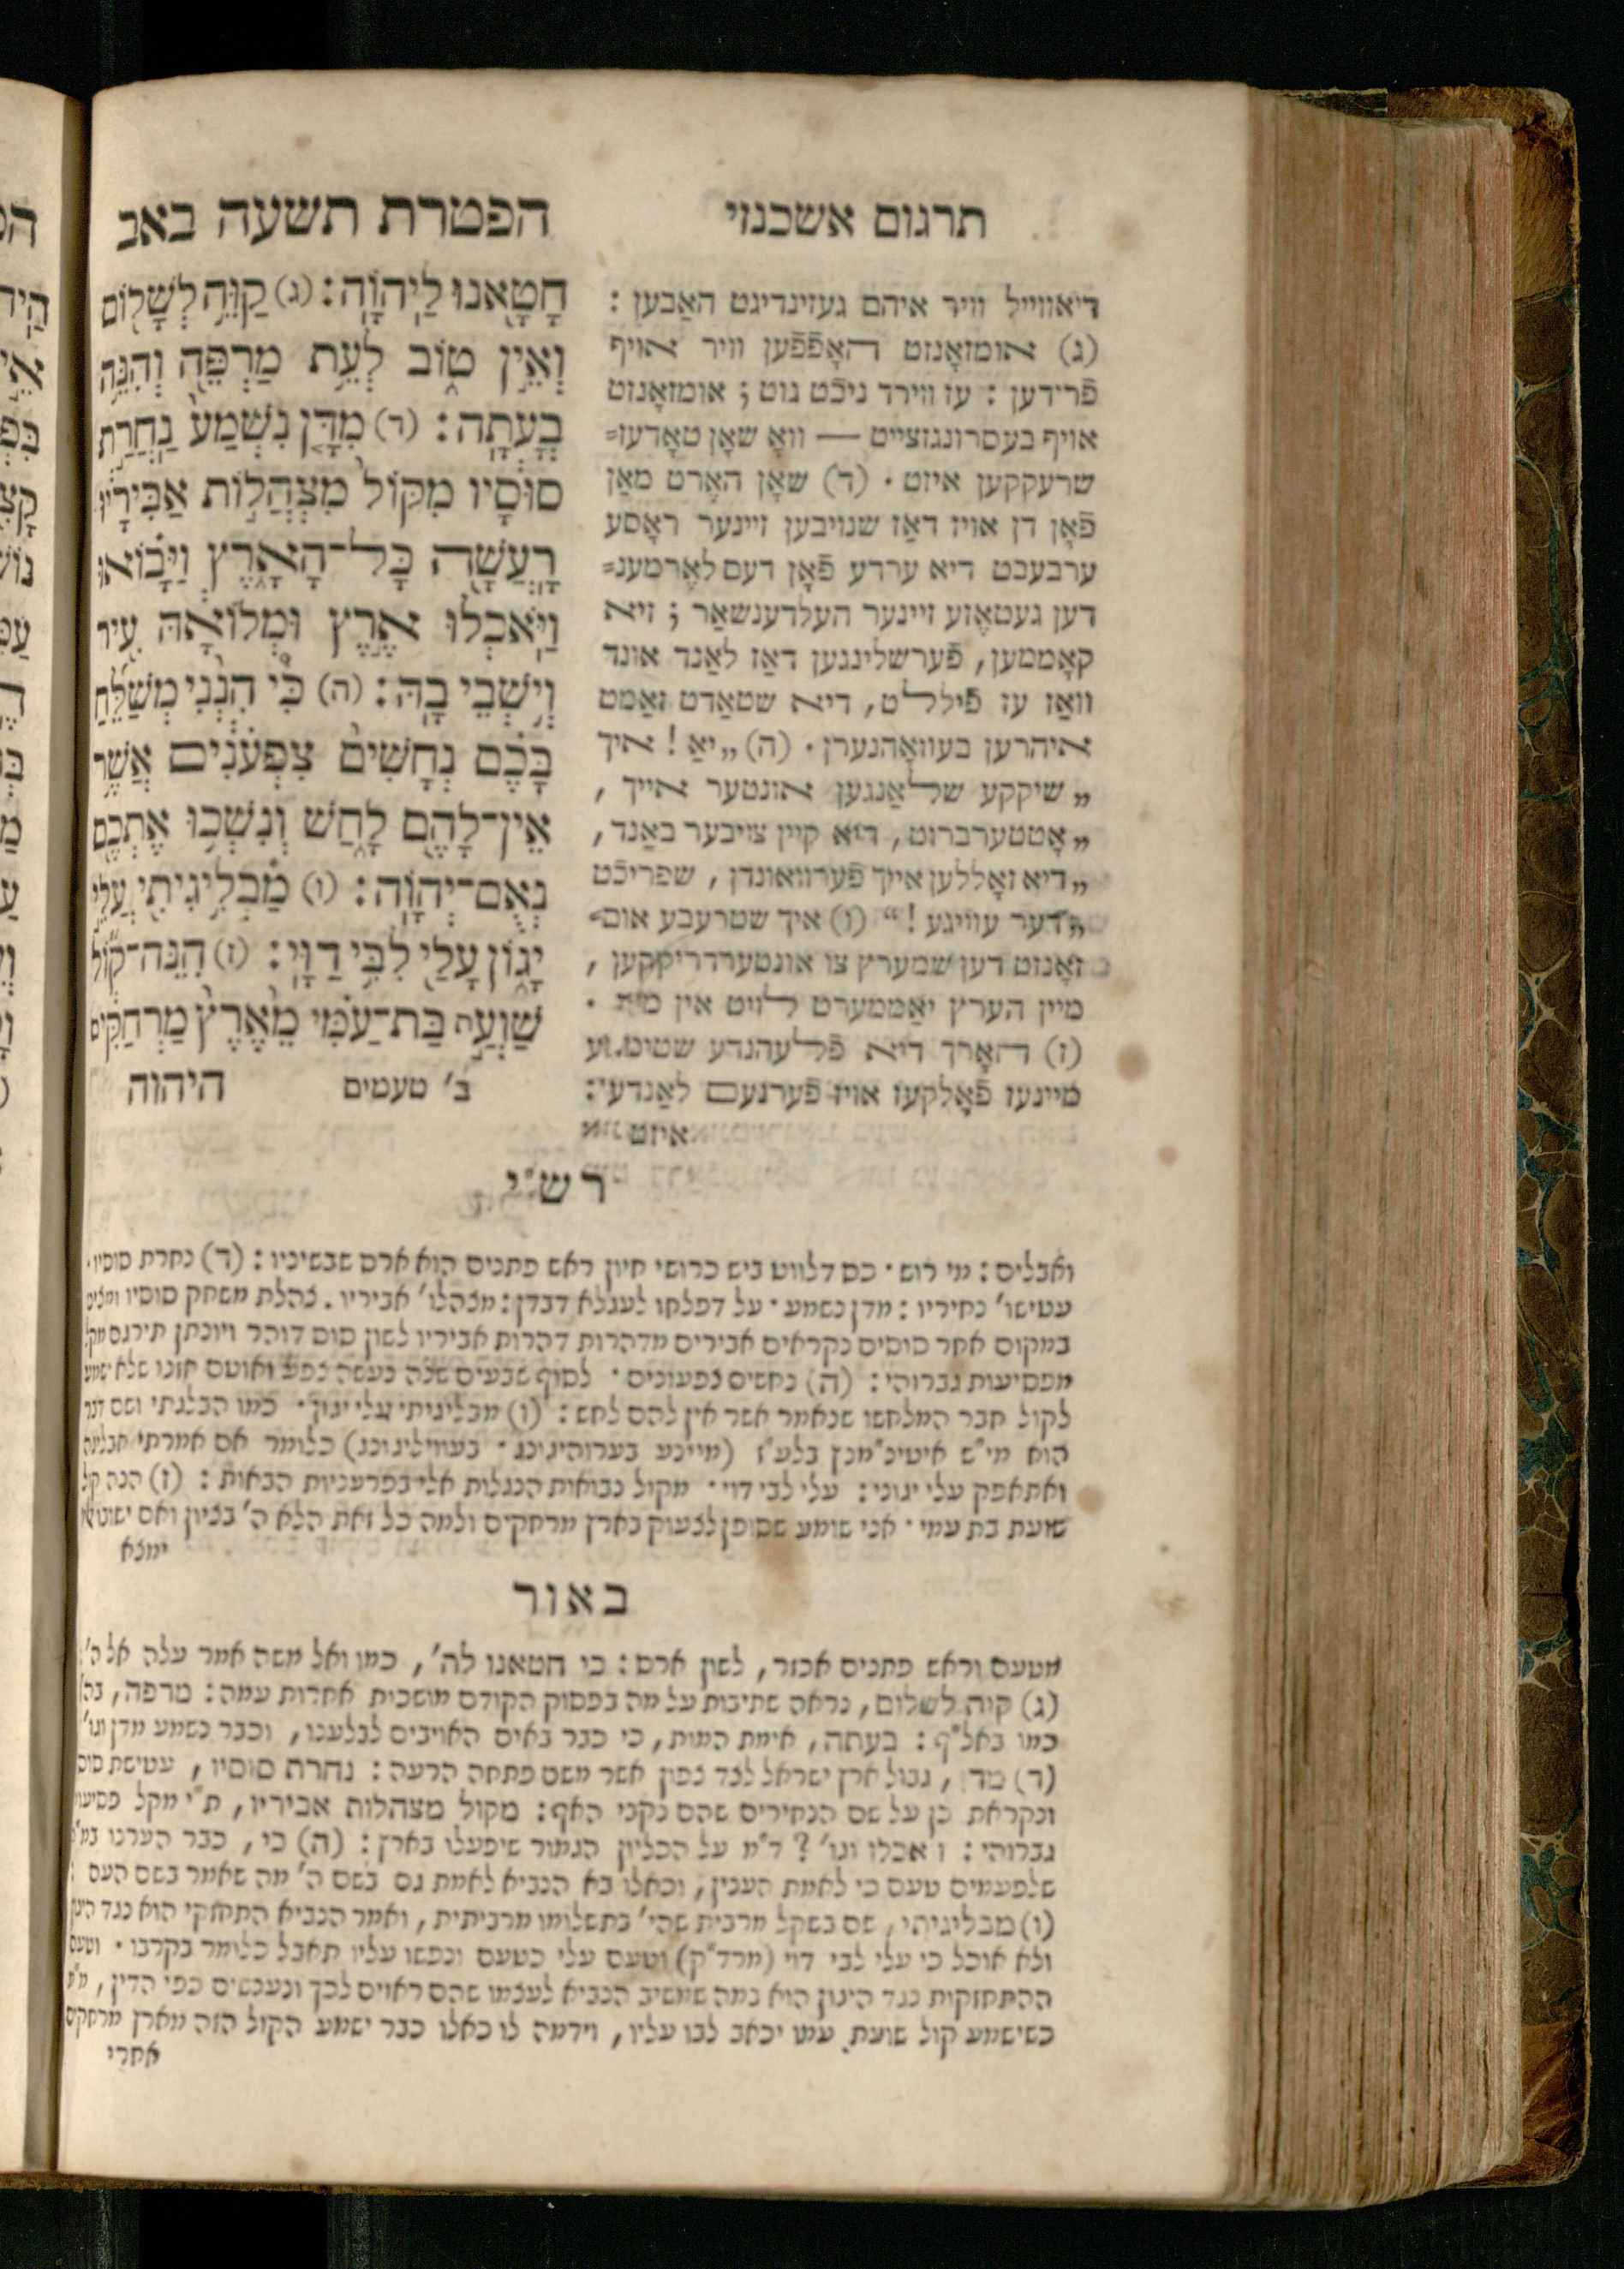 הפטרת תשעה באב
חָטָ֖אנוּ לַֽיהוָֹֽה: (ג) קַוֵּ֥ה לְשָׁל֖וֹם
וְאֵ֣ין ט֑וֹב לְעֵ֥ת מַרְפֵּ֖ה וְהִנֵּ֥ה
בְעָתָֽה: (ד) מִדָּ֤ן נִשְׁמַע֙ נַחֲרַ֣ת
סוּסָ֔יו מִקּוֹל֙ מִצְהֲל֣וֹת אַבִּירָ֔יו
רָעֲשָׁ֖ה כָּל־הָאָ֑רֶץ וַיָּב֗וֹאוּ
וַיֹּֽאכְלוּ אֶ֣רֶץ וּמְלוֹאָ֔הּ עִ֖יר
וְיֹ֥שְׁבֵי בָֽהּ: (ה) כִּי֩ הִנְנִ֨י מְשַׁלֵּ֜חַ
בָּכֶ֗ם נְחָשִׁים֙ צִפְעֹנִ֔ים אֲשֶׁ֥ר
אֵין־לָהֶ֖ם לָ֑חַשׁ וְנִשְּׁכ֥וּ אֶתְכֶ֖ם
נְאֻם־יְהוָֹֽה: (ו) מַבְלִ֥יגִיתִ֖י עֲלֵ֣י
יָג֑וֹן עָלַ֖י לִבִּ֥י דַוָּֽי: (ז) הִנֵּה־ק֞וֹל
שַׁוְעַ֣ת בַּת־עַמִּ֗י מֵאֶ֙רֶץ֙ מַרְחַקִּ֔ים
ב' טעמים היהוה
תרגום אשכנזי
דיאווייל וויר איהם געזינדיגט האַבען :
(ג) אומזאָנזט האָפֿפֿען וויר אויף
פֿרידען : עז ווירד ניכֿט גוט ; אומזאָנזט
אויף בעסרונגזצייט — וואָ שאָן טאָדעז=
שרעקקען איזט . (ד) שאָן האֶרט מאַן
פֿאָן דן אויז דאַז שנויבען זיינער ראָסע
ערבעבט דיא ערדע פֿאָן דעם לאֶרמענ=
דען געטאֶזע זיינער העלדענשאַר ; זיא
קאָממען, פֿערשלינגען דאַז לאַנד אונד
וואַז עז פֿיללט, דיא שטאַדט זאַמט
איהרען בעוואָהנערן . (ה) „יאַ ! איך
„שיקקע שלאַנגען אונטער אייך ,
„אָטטערברוט, דיא קיין צויבער באַנד,
„דיא זאָללען אייך פֿערוואונדן , שפריכֿט
„דער עוויגע !“ (ו) איך שטרעבע אומ=
זאָנזט דען שמערץ צו אונטערדריקקען ,
מיין הערץ יאַממערט לויט אין מיר .
(ז) האָרך דיא פֿלעהנדע שטיממע
מיינעז פֿאָלקעז אויז פֿערנעם לאַנדע :
איזט
רש"י
ואבליס: מי רוש . כס דלווט ביש כרושי חיון ראש פתנים הוא ארס שבשיניו : (ד) נחרת סוסיו .
עטישו' נחיריו : מדן נשמע . על דפלחו לעגלא דבדן : מצהלו' אביריו . צהלת משחק סוסיו
במקום אחר סוסים נקראים אבירים מדהרות דהרות אביריו לשון סוס דוהר ויונתן תירגם מקל
מפסיעות גברוהי : (ה) נחשים צפעונים . לסוף שבעים שנה נעשה צפע ואוטם אזנו שלא ישמע
לקול חבר המלחשו שנאמר אשר אין להם לחש : (ו) מבליגיתי עלי יגון . כמו הבלגתי ושם דבר
הוא מי"ש בלע"ז כלומר אם אמרתי אבליגה
ואתאפק עלי יגוני : עלי לבי דוי . מקול נבואות הנגלות אלי בפרעניות הבאות : (ז) הנה קול
שועת בת עמי . אני שומע שסופן לצעוק בארץ מרחקים ולמה כל זאת הלא ה' בציון ואם
ימצא
באור
מטעם וראש פתנים אכזר, לשון ארס : כי חטאנו לה', כמו ואל משה אמר עלה אל ה' :
(ג) קוה לשלום, נראה שתיבות על מה בפסוק הקודם מושכות אחרות עמה : מרפה, בה'
כמו באל"ף : בעתה, אימת המות, כי כבר באים האויבים לבלענו, וכבר נשמע מדן וגו' :
(ד) מדן, גבול ארץ ישראל לצד צפון אשר משם פתחה הרעה : נחרת סוסיו, עטישת סוס
ונקראת כן על שם הנחירים שהם נקבי האף : מקול מצהלות אביריו, ת"י מקל פסיעות
גברוהי : ויאכלו וגו' ? ד"מ על הכליון הגמור שיפעלו בארץ : (ה) כי, כבר הערנו
שלפעמים טעם כי לאמת הענין, וכאלו בא הנביא לאמת גם בשם ה' מה שאמר בשם העם :
(ו) מבליגיתי, שם בשקל מרבית שהי' בתשלומו מרביתית, ואמר הנביא התחזקי הוא כנגד היגון
ולא אוכל כי עלי לבי דוי (מרד"ק) וטעם עלי כטעם ונפשו עליו תאבל כלומר בקרבו . וטעם
ההתחזקות כנגד היגון הוא במה שמשיב הנביא לעצמו שהם ראוים לכך ונענשים כפי הדין,
כשישמע קול שועת עמו יכאב לבו עליו, וידמה לו כאלו כבר ישמע הקול הזה מארץ מרחקים
אחרי